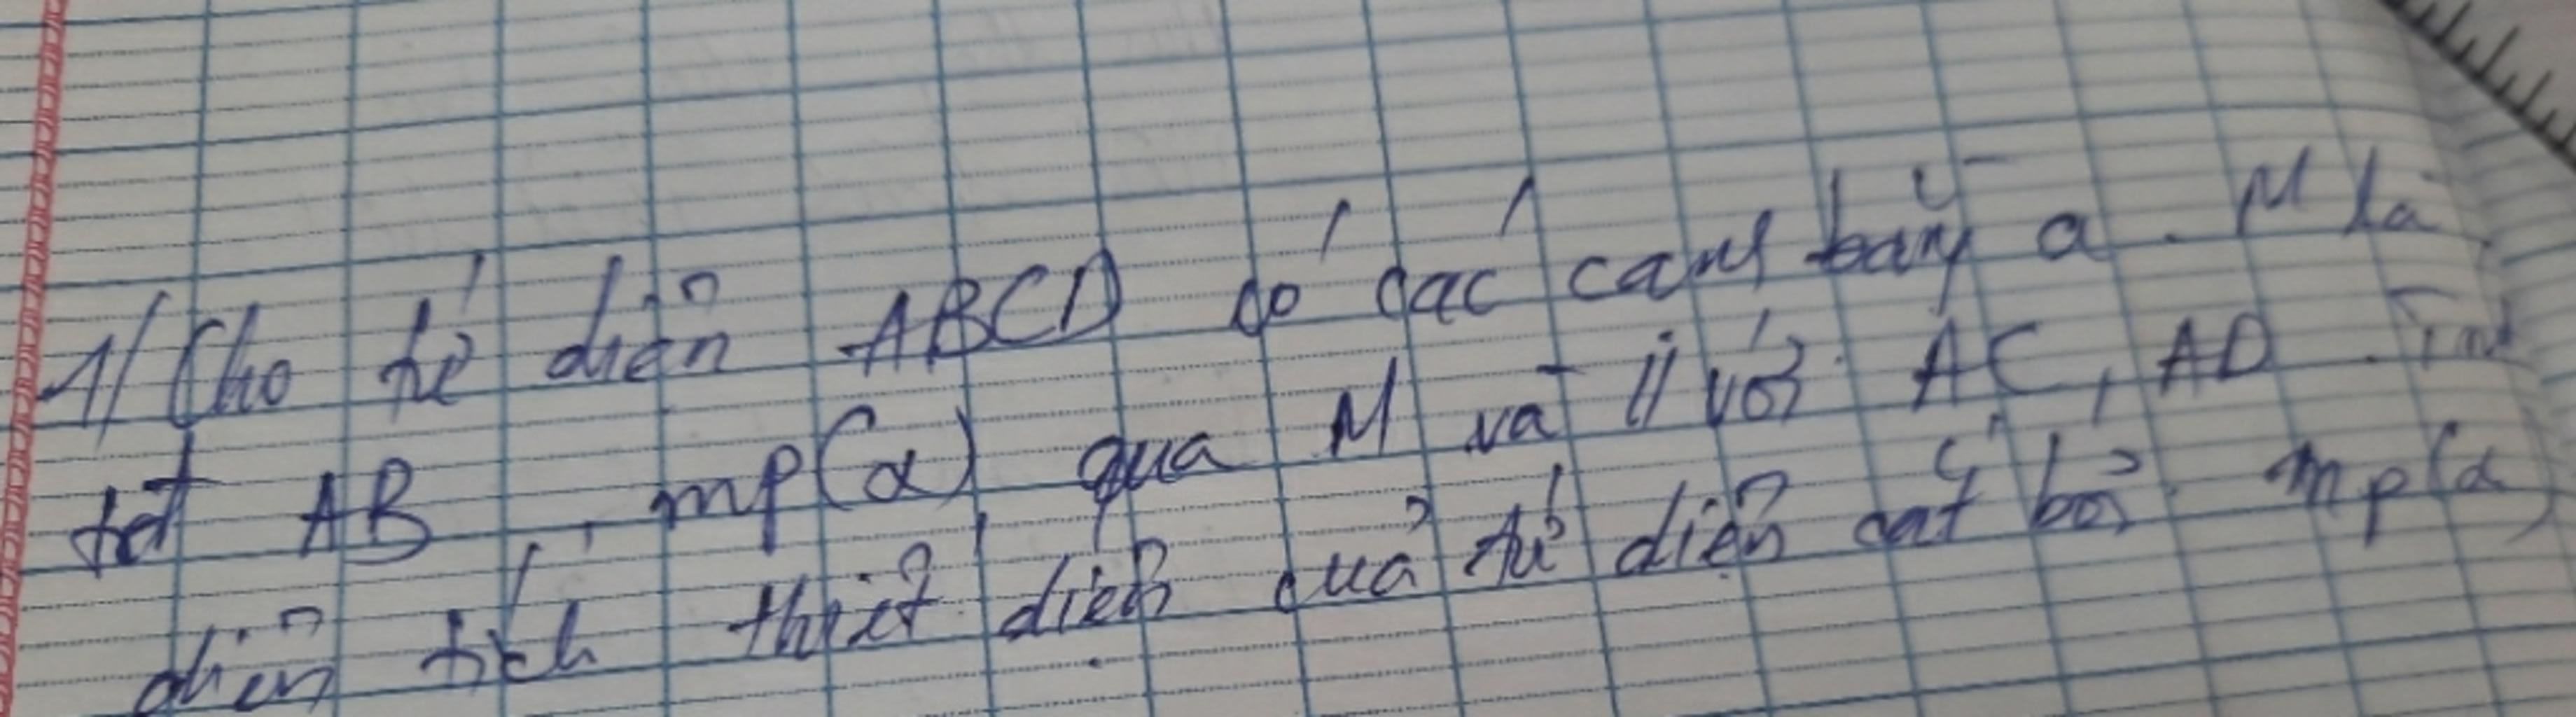 1/ Cho tứ diện ABCD có các cạnh bằng a. M là
AB, mp(α) qua M và // với AC, AD. Tính
diện tích thiết diện của tứ diện cắt bởi mp(α)